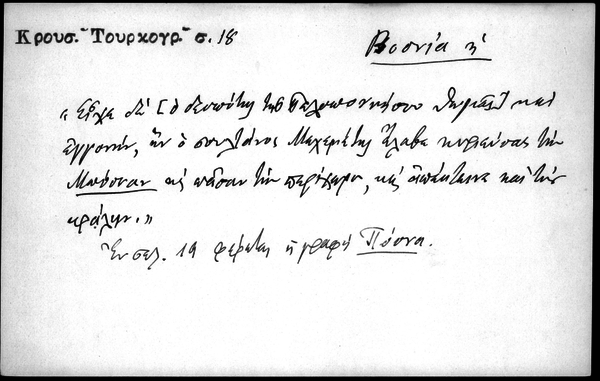 Κρουσ. Τουρκογρ. σ. 18
Βοσνία ἡ
« Εἶχε δὲ [ὁ δεσπότης τῆς Πελοποννήσου Θωμᾶς] καὶ
ἐγγονήν, ἣν ὁ σουλτάνος Μαχεμέτης ἔλαβε κυριεύσας τὴν
Μπόσναν κς πᾶσαν τὴν περίχωρο, κς ἀπέκτεινε καὶ τὸν
κράλην. »
Ἐν σελ. 19 φέρεται ἡ γραφὴ Πόσνα.